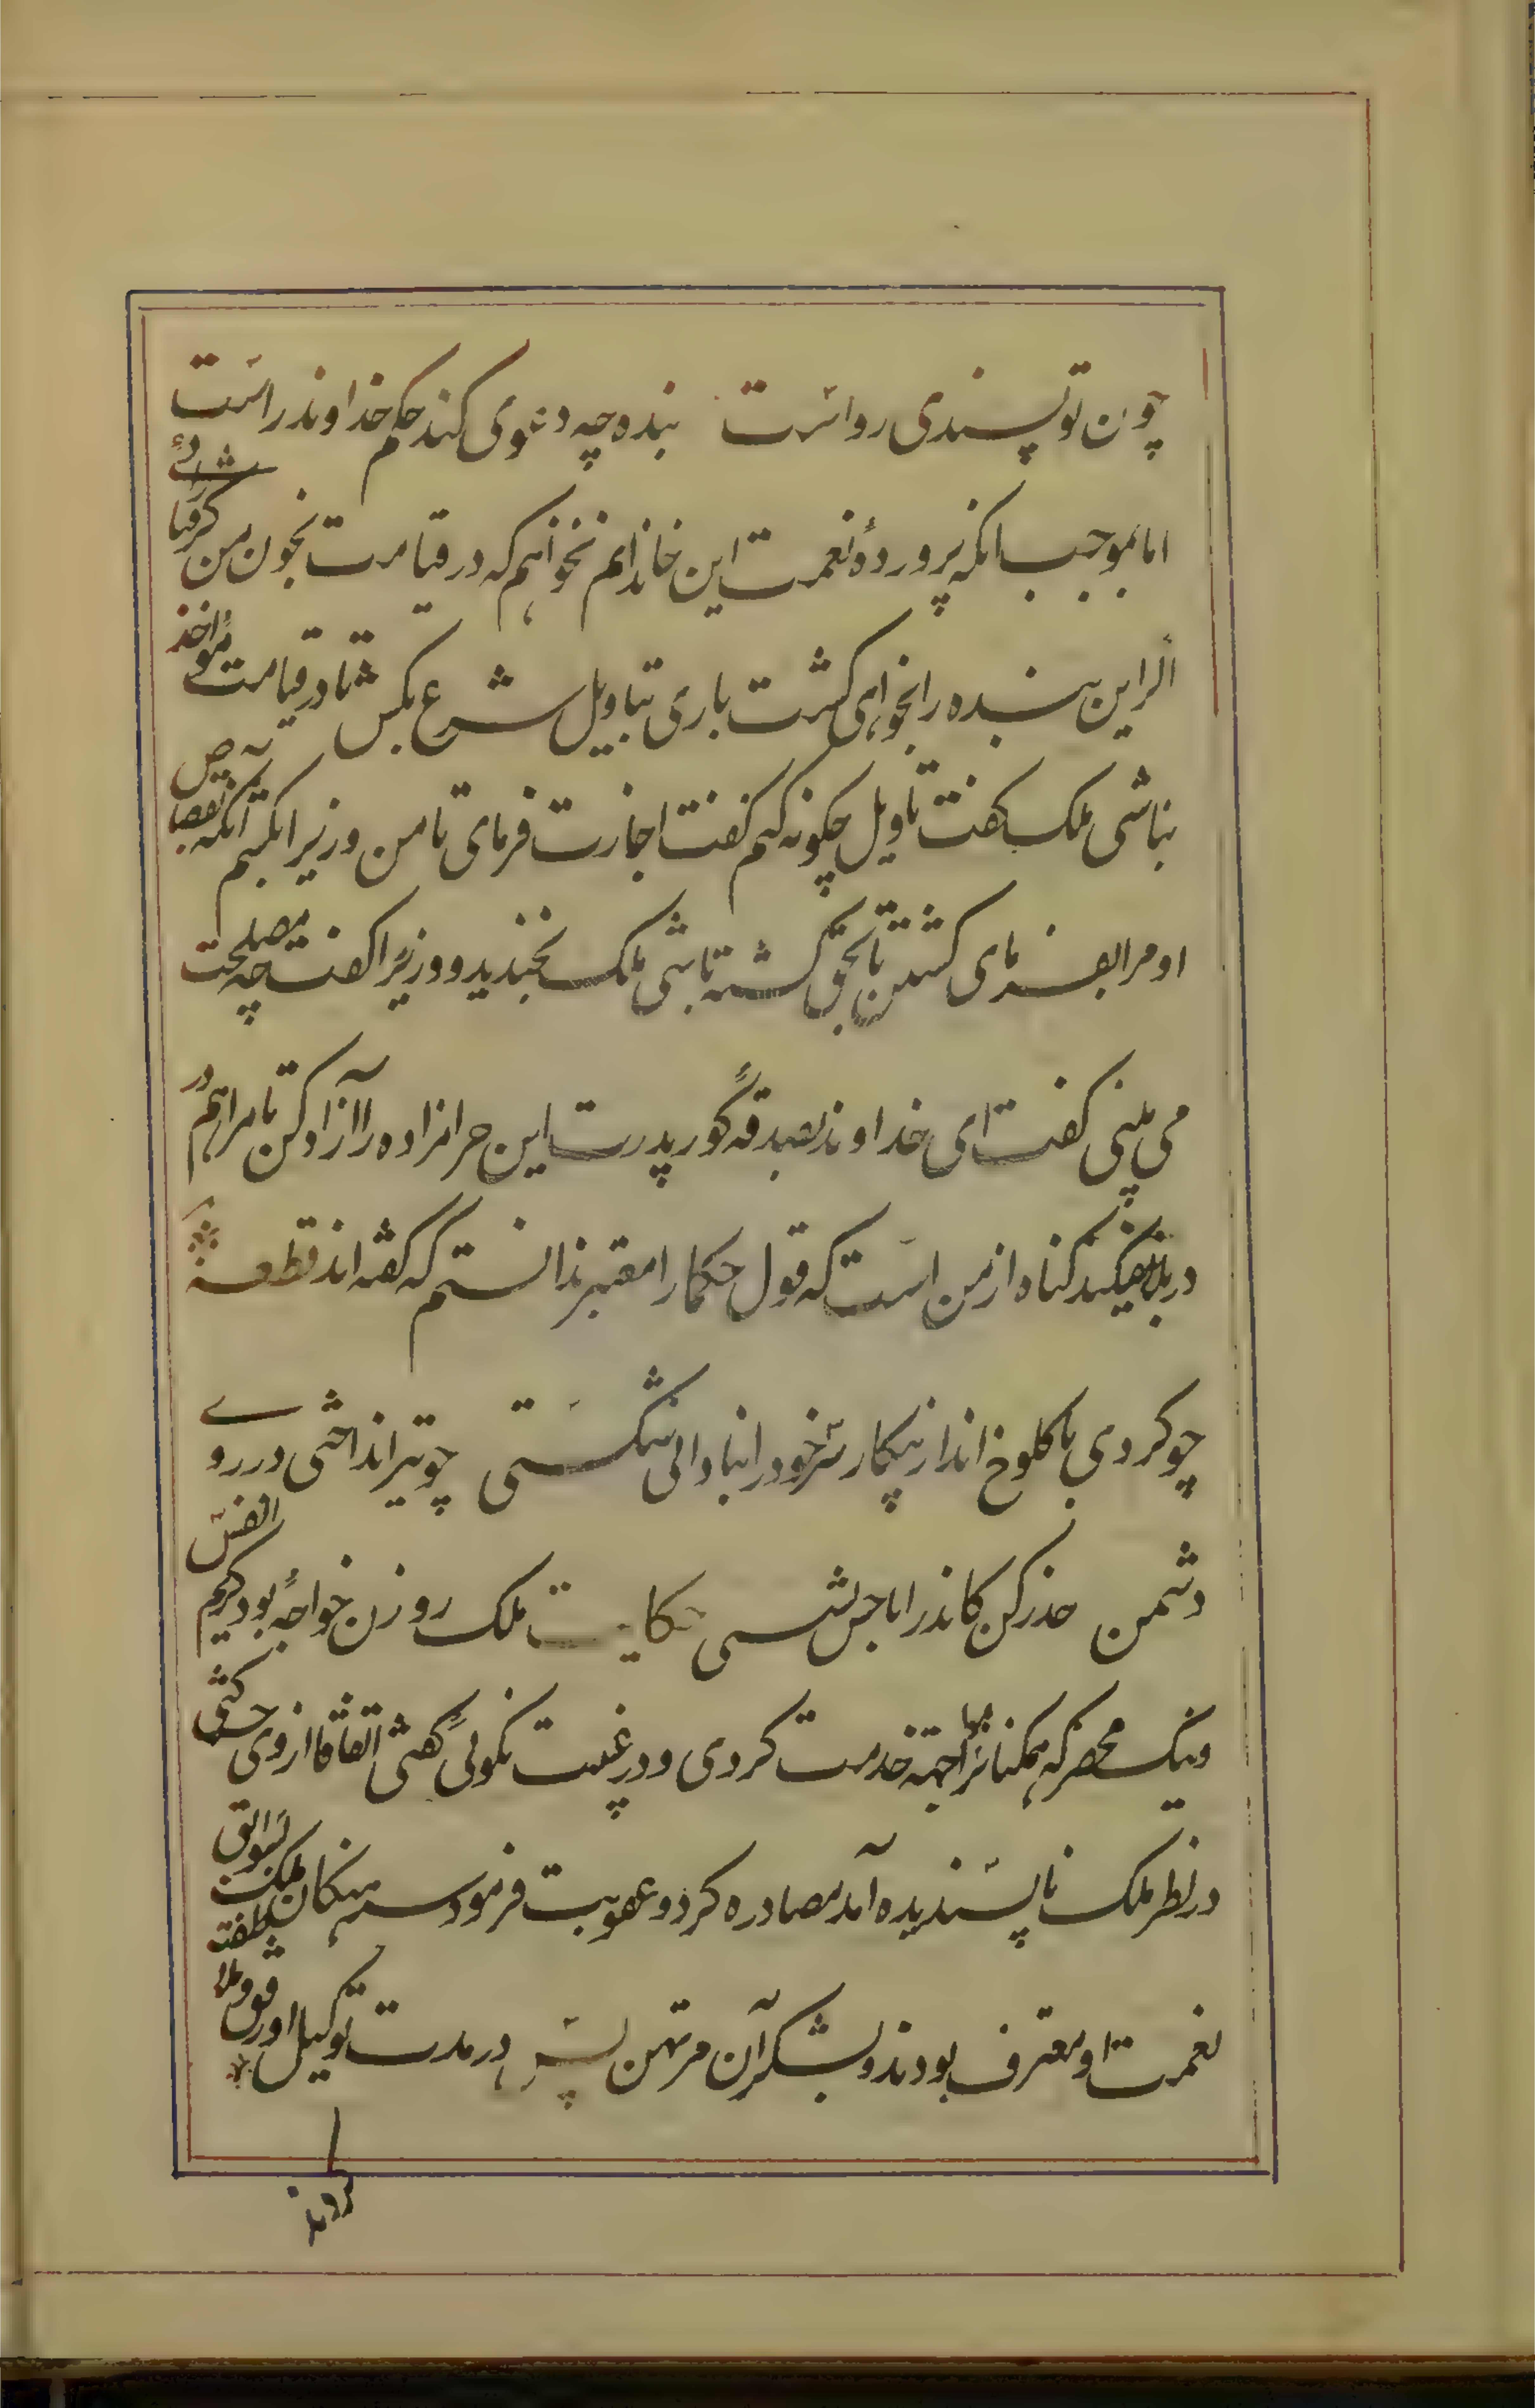 چون تو پسندی رواست بنده چه دعوی کند حکم خداوند راست
اما بموجب انکه پروردهٔ نعمت این خاندانم نخواهم که در قیامت بخون من کرفتار شوی
اگر این بنده را بخواهی کشت باری بتاویل شرع بکش تا در قیامت مؤاخذ
نباشی ملک کفت تاویل چکونه کنم کفت اجازت فرمای تا من وزیر را بکشم آنکه بقصاص
او مرا بفرمای کشتن تا بحق کشته باشی ملک بخندید و وزیر را کفت چه مصلحت
می بینی کفت ای خداوند بصدقه گور پدرت این حرامزاده را آزاد کن تا مرا هم در
بلا نیفکند کناه از من است که قول حکما را معتبر ندانستم که کفته اند قطعه
چو کردی با کلوخ انداز پیکار سر خود را بنادانی شکستی چو تیر انداختی در روی
دشمن حذر کن کاندر اماجش نشستی حکایت ملک زوزن را خواجهٔ بود کریم النفس
و نیک محضر که همکنانرا در مواجهه خدمت کردی و در غیبت نکوئی گفتی اتفاقا از وی حرکتی
در نظر ملک ناپسندیده آمد مصادره کرد و عقوبت فرمود سرهنکان ملک بسوابق
نعمت او معترف بودند و بشکر آن مرتهن پس در مدت توکیل او رفق و ملاطفت
کردند